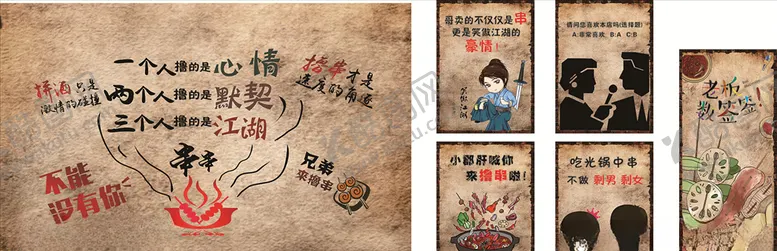 一个人撸的是心情
两个人撸的是默契
三个人撸的是江湖
拼酒只是
激情的碰撞
撸串才是
速度的角逐
串串
不能
没有你
兄弟
来撸串
哥卖的不仅仅是串
更是笑傲江湖的
豪情!
笑傲江湖
请问您喜欢本店吗(选择题)
A:非常喜欢 B:A C:B
小郡肝喊你
来撸串啦!
吃光锅中串
不做 剩男 剩女
老板
数签签!